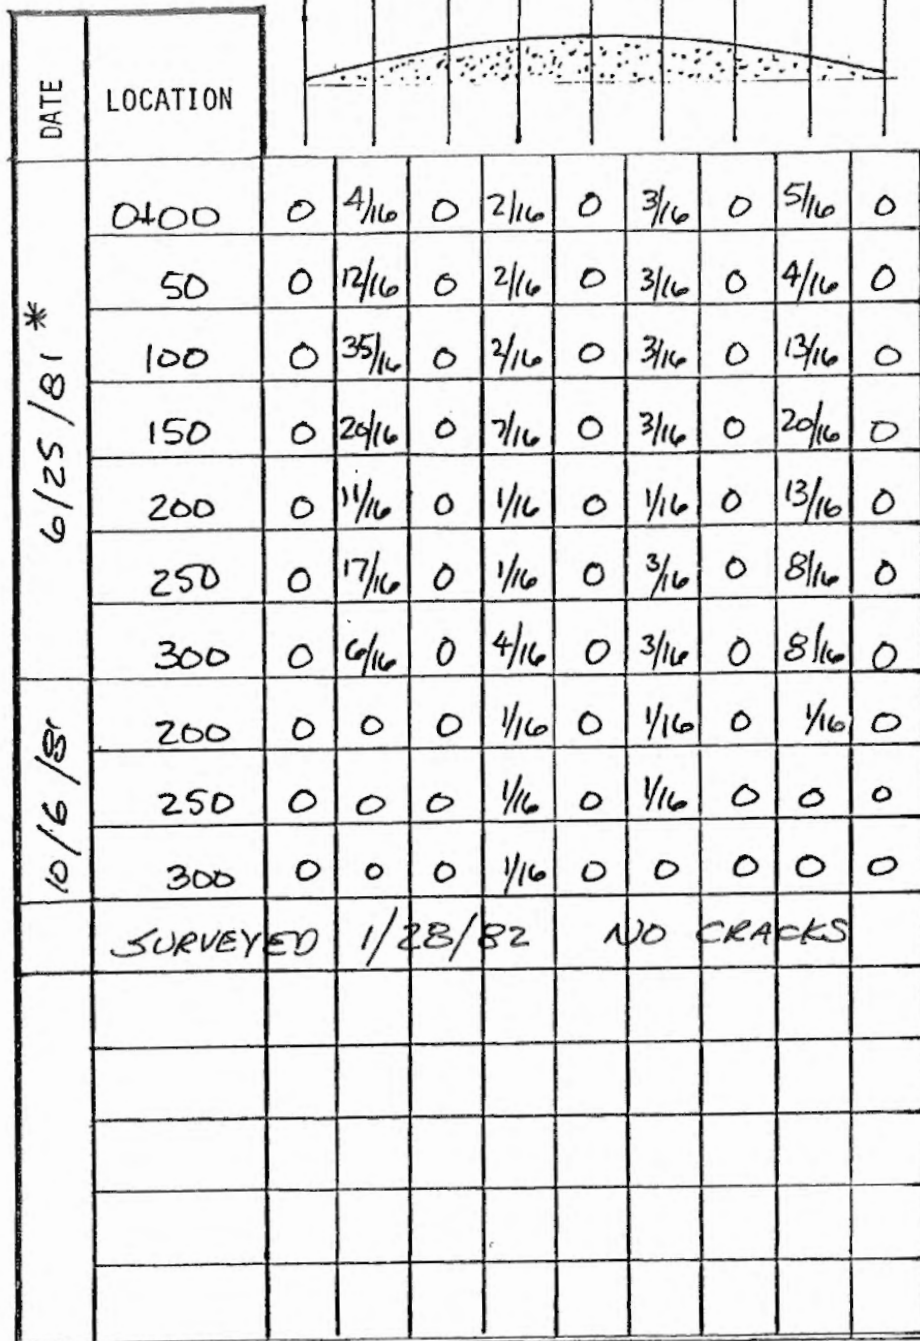 DATE LOCATION
6/25/81 *
0+00 0 4/16 0 2/16 0 3/16 0 5/16 0
50 0 12/16 0 2/16 0 3/16 0 4/16 0
100 0 35/16 0 2/16 0 3/16 0 13/16 0
150 0 20/16 0 7/16 0 3/16 0 20/16 0
200 0 11/16 0 1/16 0 1/16 0 13/16 0
250 0 17/16 0 1/16 0 3/16 0 8/16 0
300 0 6/16 0 4/16 0 3/16 0 8/16 0
10/6/81
200 0 0 0 1/16 0 1/16 0 1/16 0
250 0 0 0 1/16 0 1/16 0 0 0
300 0 0 0 1/16 0 0 0 0 0
SURVEYED 1/28/82 NO CRACKS